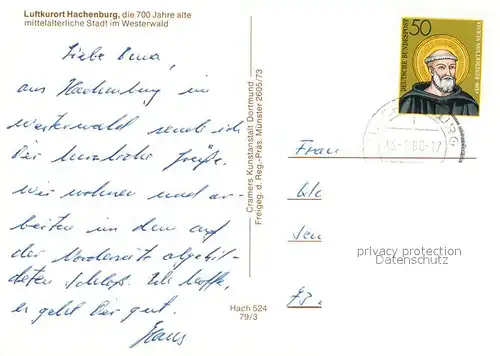 Luftkurort Hachenburg, die 700 Jahre alte
mittelalterliche Stadt im Westerwald
Liebe Oma,
aus Hachenburg im
Westerwald sende ich
Dir herzliche Grüße.
Wir wohnen und ar-
beiten in dem auf
der Vorderseite abgebil-
deten Schloß. Ich hoffe,
es geht Dir gut.
Hans
Cramers Kunstanstalt Dortmund
Freigeg. d. Reg.-Präs. Münster 2605/73
Hach 524
79/3
50
DEUTSCHE BUNDESPOST
BENEDIKT VON NURSIA
Frau
privacy protection
Datenschutz